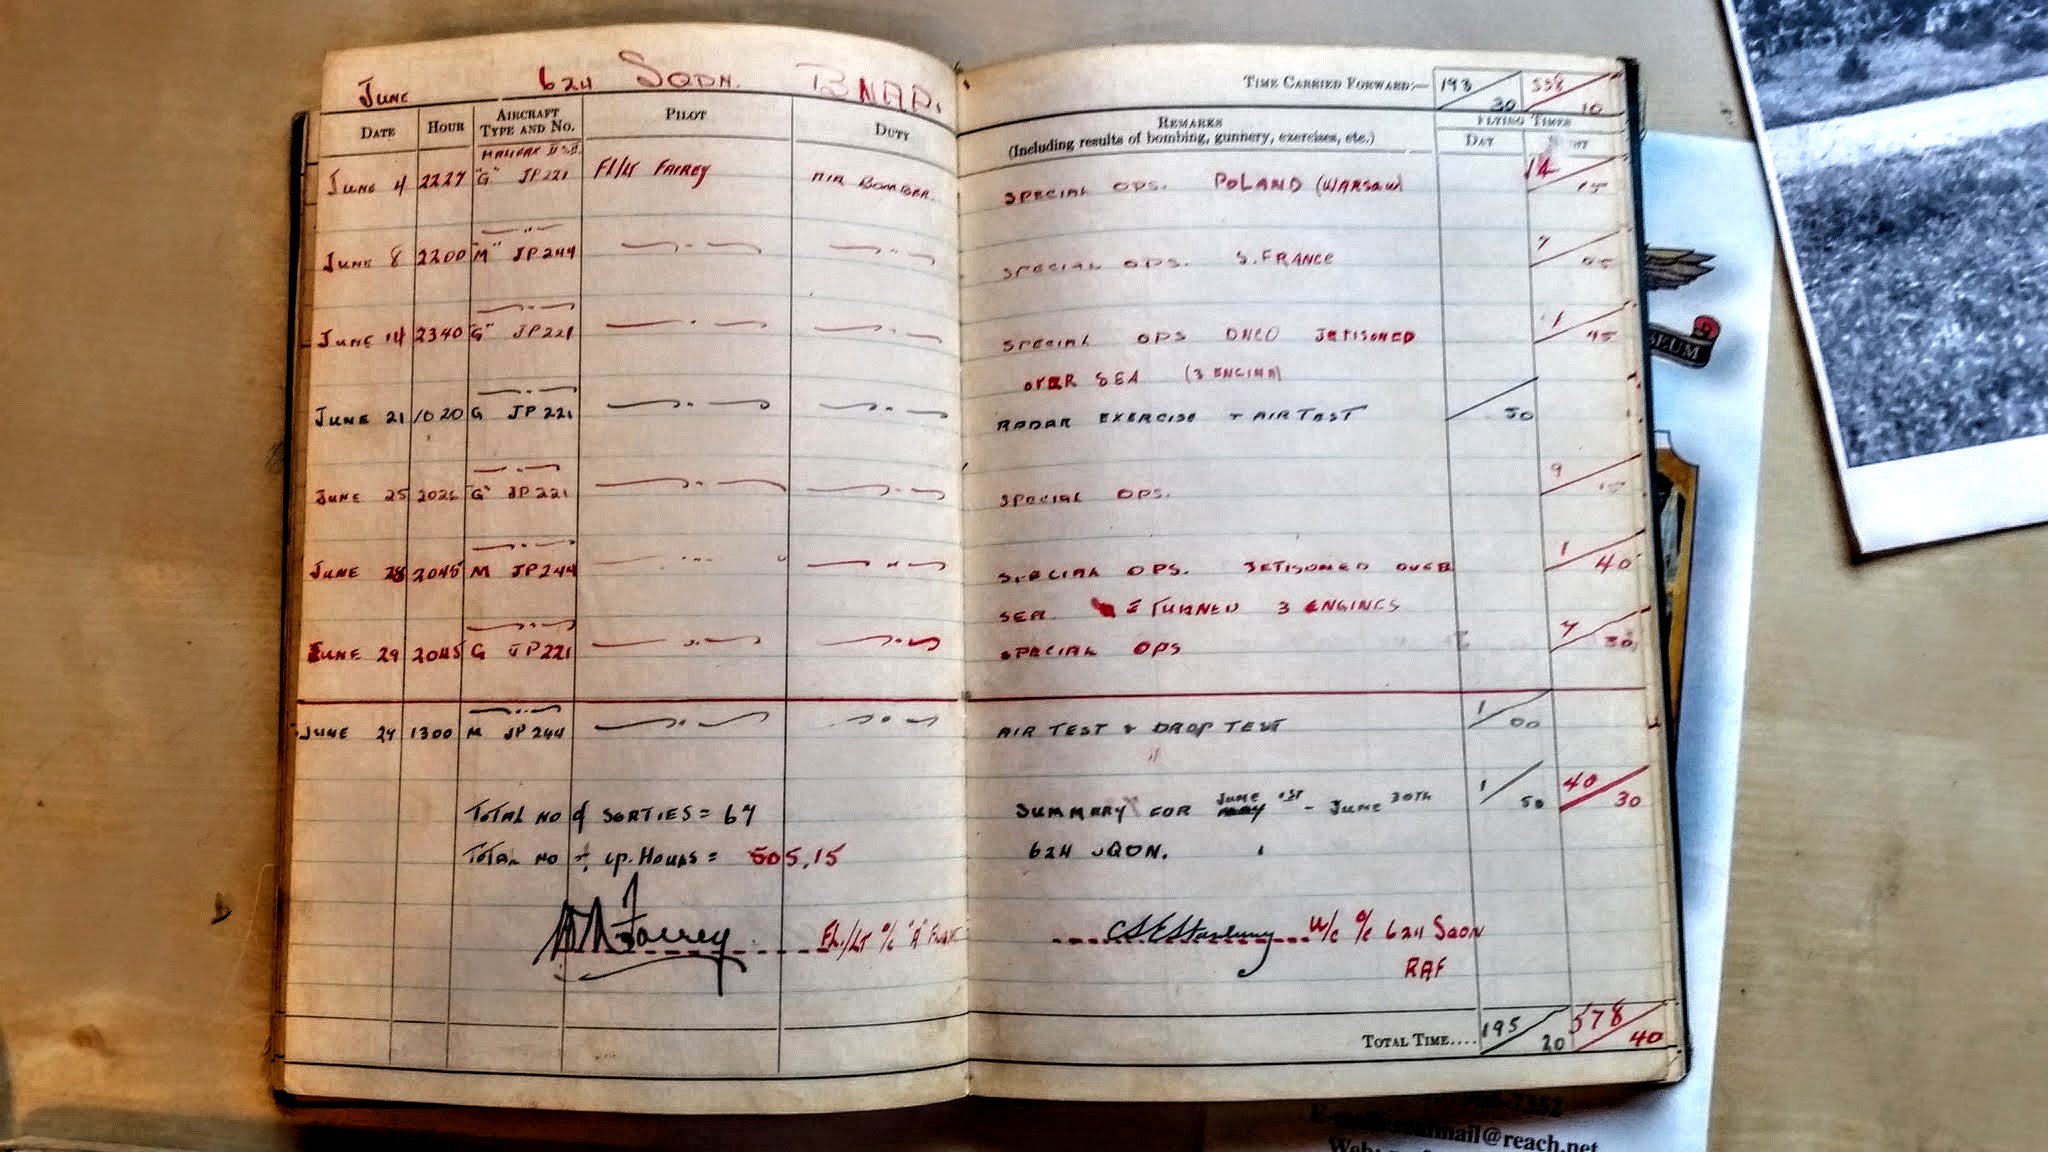 June 624 SQDN. BNAP.
TIME CARRIED FORWARD:— 193 30 538 10
DATE HOUR AIRCRAFT TYPE AND No. PILOT DUTY REMARKS (Including results of bombing, gunnery, exercises, etc.) FLYING TIMES DAY
HALIFAX
JUNE 4 2227 "G" JP221 Fl/Lt FAIREY AIR BOMBER. SPECIAL OPS. POLAND (WARSAW) 14 15
JUNE 8 2200 "M" JP244 SPECIAL OPS. S. FRANCE 7
JUNE 14 2340 "G" JP221 SPECIAL OPS DNCO JETISONED 1 45
OVER SEA (3 ENGINE)
JUNE 21 1020 G JP221 RADAR EXERCISE + AIR TEST 50
JUNE 25 "G" JP221 SPECIAL OPS. 9 15
JUNE 28 2045 M JP244 SPECIAL OPS. JETISONED OVER 1 40
SEA 3 ENGINES
JUNE 29 2045 G JP221 SPECIAL OPS 7 30
JUNE 1300 M JP244 AIR TEST & DROP TEST 1 00
TOTAL NO of SORTIES = 67 SUMMARY FOR JUNE 1ST - JUNE 30TH 1 50 40 30
TOTAL NO OP. HOURS = 505.15 624 SQDN.
FL/LT o/c "A" W/C o/c 624 SQDN
RAF
TOTAL TIME.... 195 20 578 40
SEUM
mail@reach.net
Web: